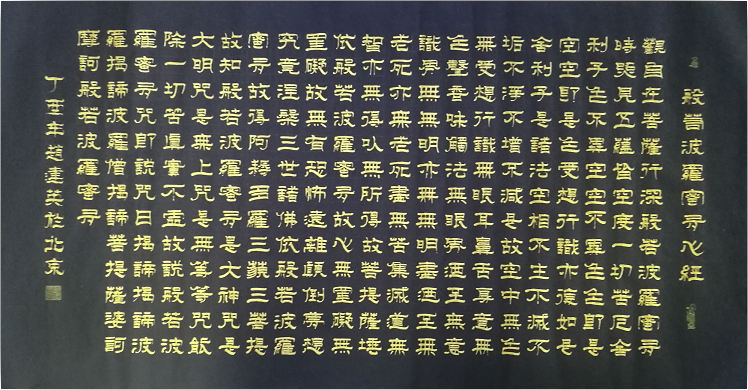 般若波羅蜜多心經
觀自在菩薩行深般若波羅蜜多
時照見五蘊皆空度一切苦厄舍
利子色不異空空不異色色即是
空空即是色受想行識亦復如是
舍利子是諸法空相不生不滅不
垢不淨不增不減是故空中無色
無受想行識無眼耳鼻舌身意無
色聲香味觸法無眼界乃至無意
識界無無明亦無無明盡乃至無
老死亦無老死盡無苦集滅道無
智亦無得以無所得故菩提薩埵
依般若波羅蜜多故心無罣礙無
罣礙故無有恐怖遠離顛倒夢想
究竟涅槃三世諸佛依般若波羅
蜜多故得阿耨多羅三藐三菩提
故知般若波羅蜜多是大神咒是
大明咒是無上咒是無等等咒能
除一切苦真實不虛故說般若波
羅蜜多咒即說咒曰揭諦揭諦波
羅揭諦波羅僧揭諦菩提薩婆訶
摩訶般若波羅蜜多
丁亥年趙英於北京